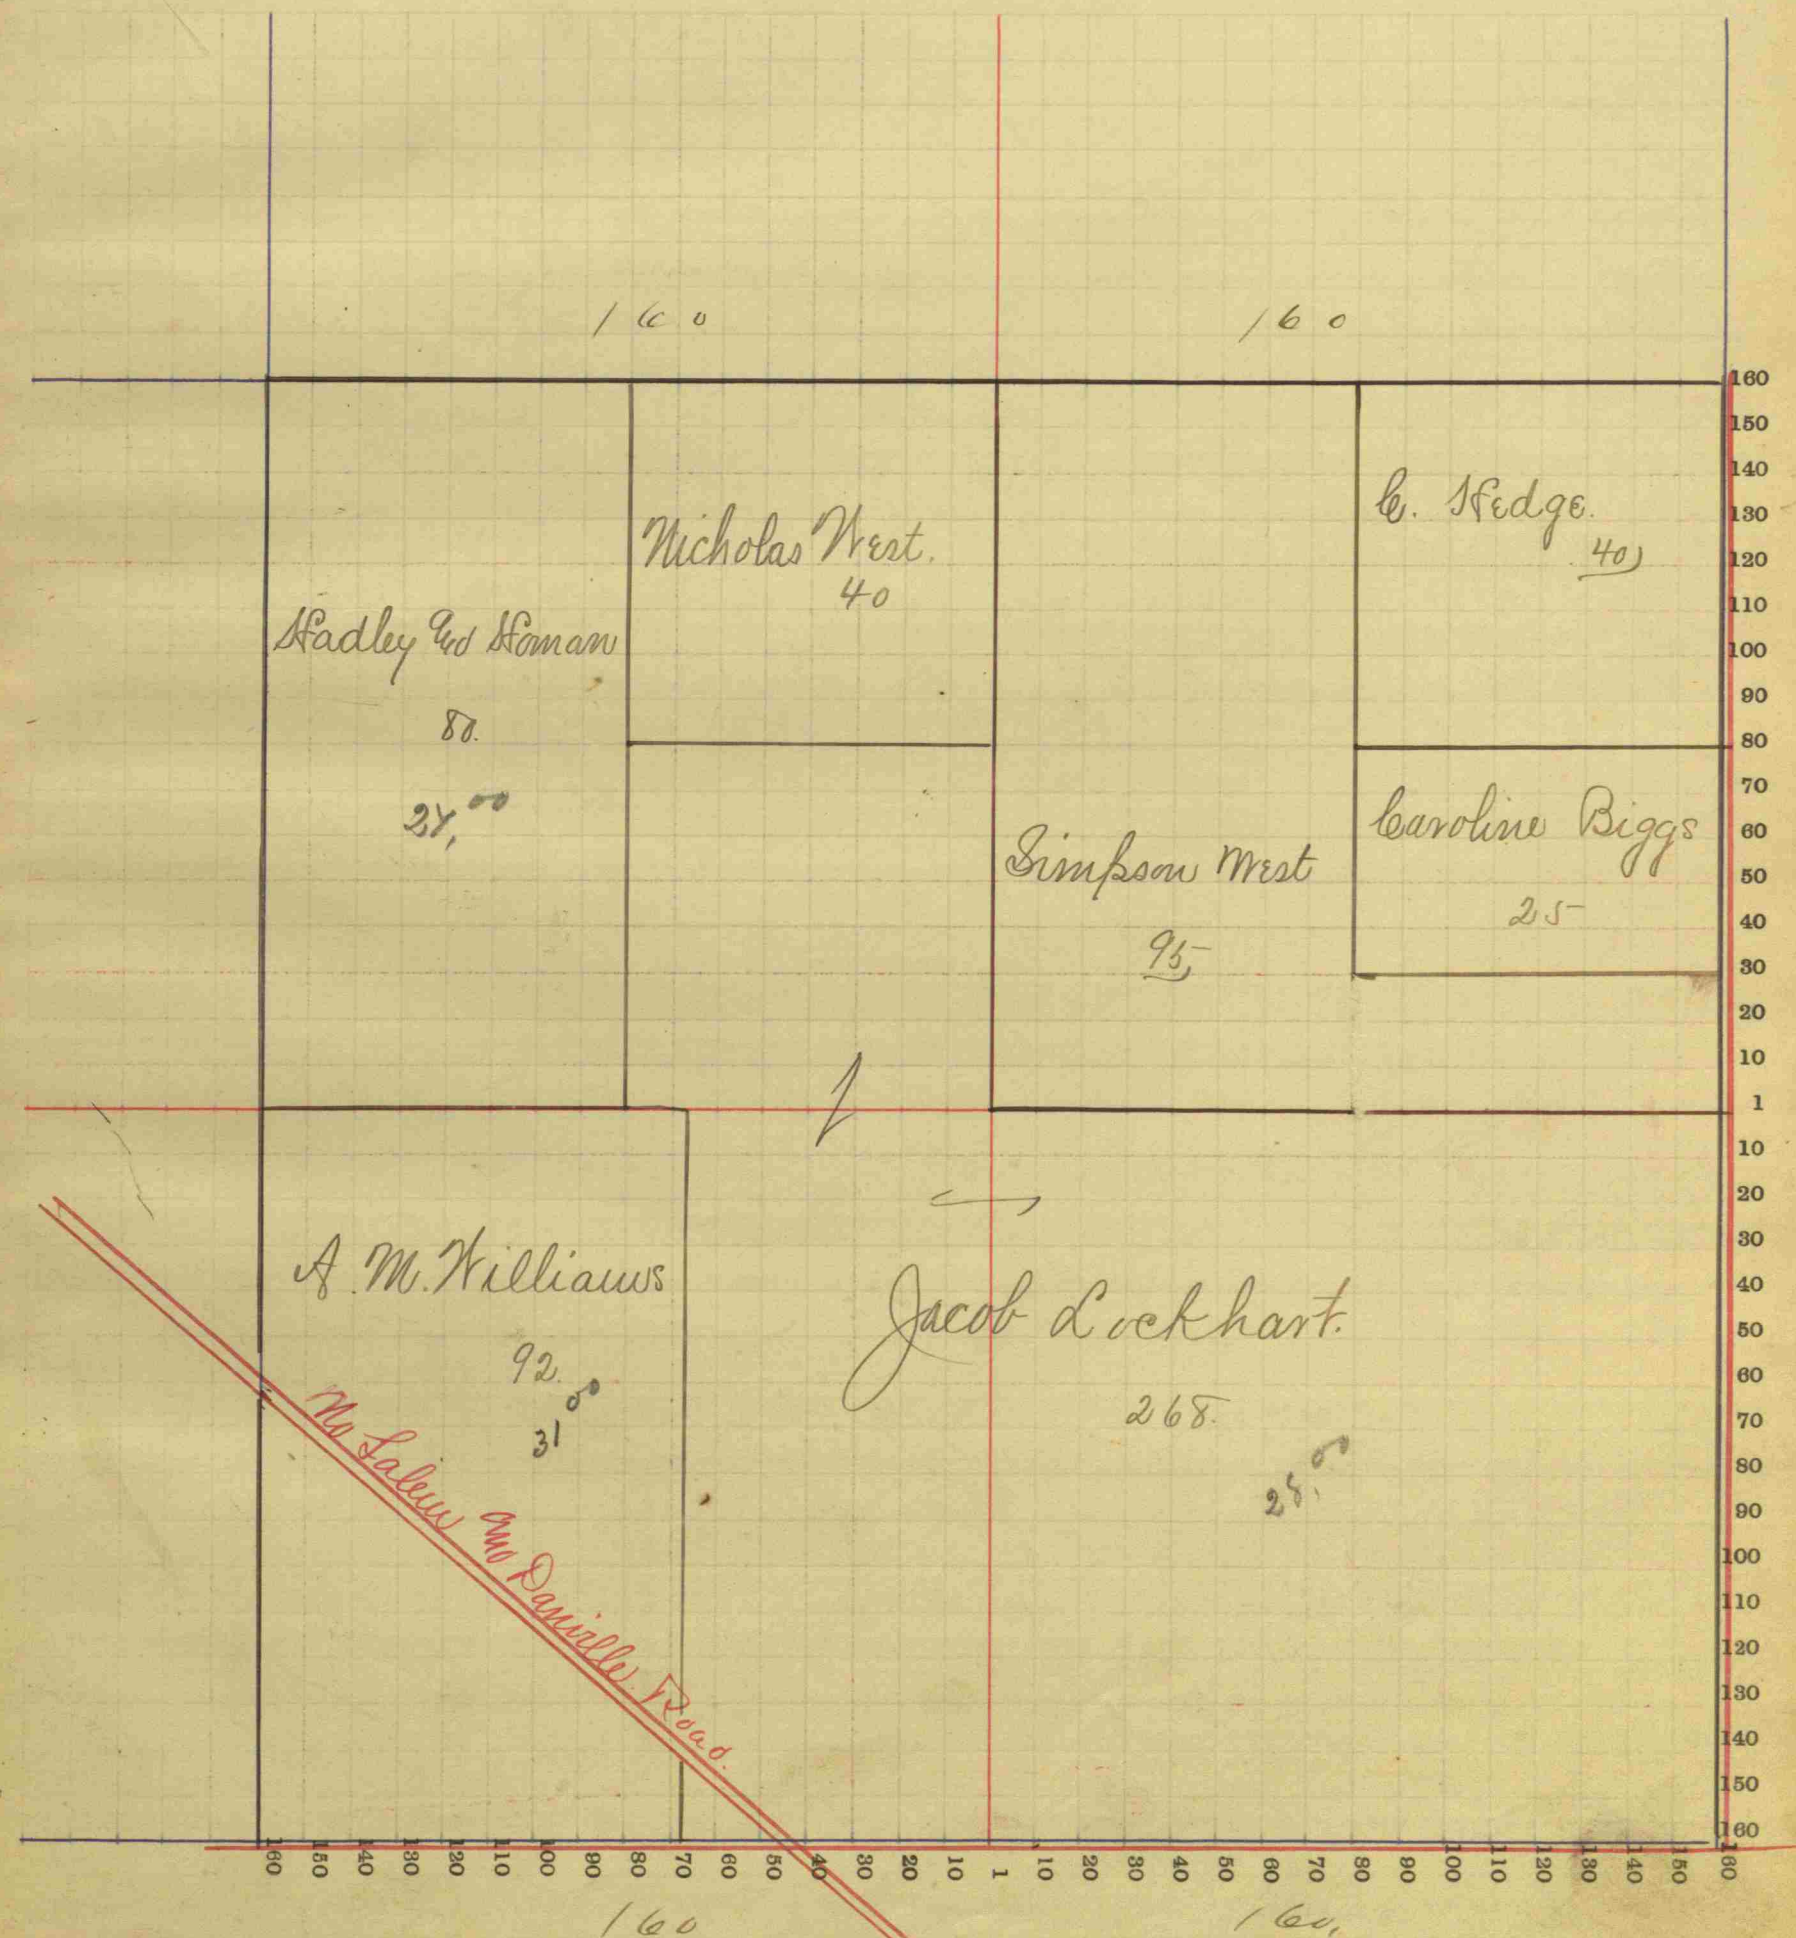 160
160
Nicholas West.
40
C. Hedge.
40
Hadley and Homan
80.
Simpson West
95,
Caroline Biggs
25
A. M. Williams
92.
31 00
Jacob Lockhart.
268.
28, 00
No Salem and Danville Road.
160
150
140
130
120
110
100
90
80
70
60
50
40
30
20
10
1
10
20
30
40
50
60
70
80
90
100
110
120
130
140
150
160
160 150 140 130 120 110 100 90 80 70 60 50 40 30 20 10 1 10 20 30 40 50 60 70 80 90 100 110 120 130 140 150 160
160
160,